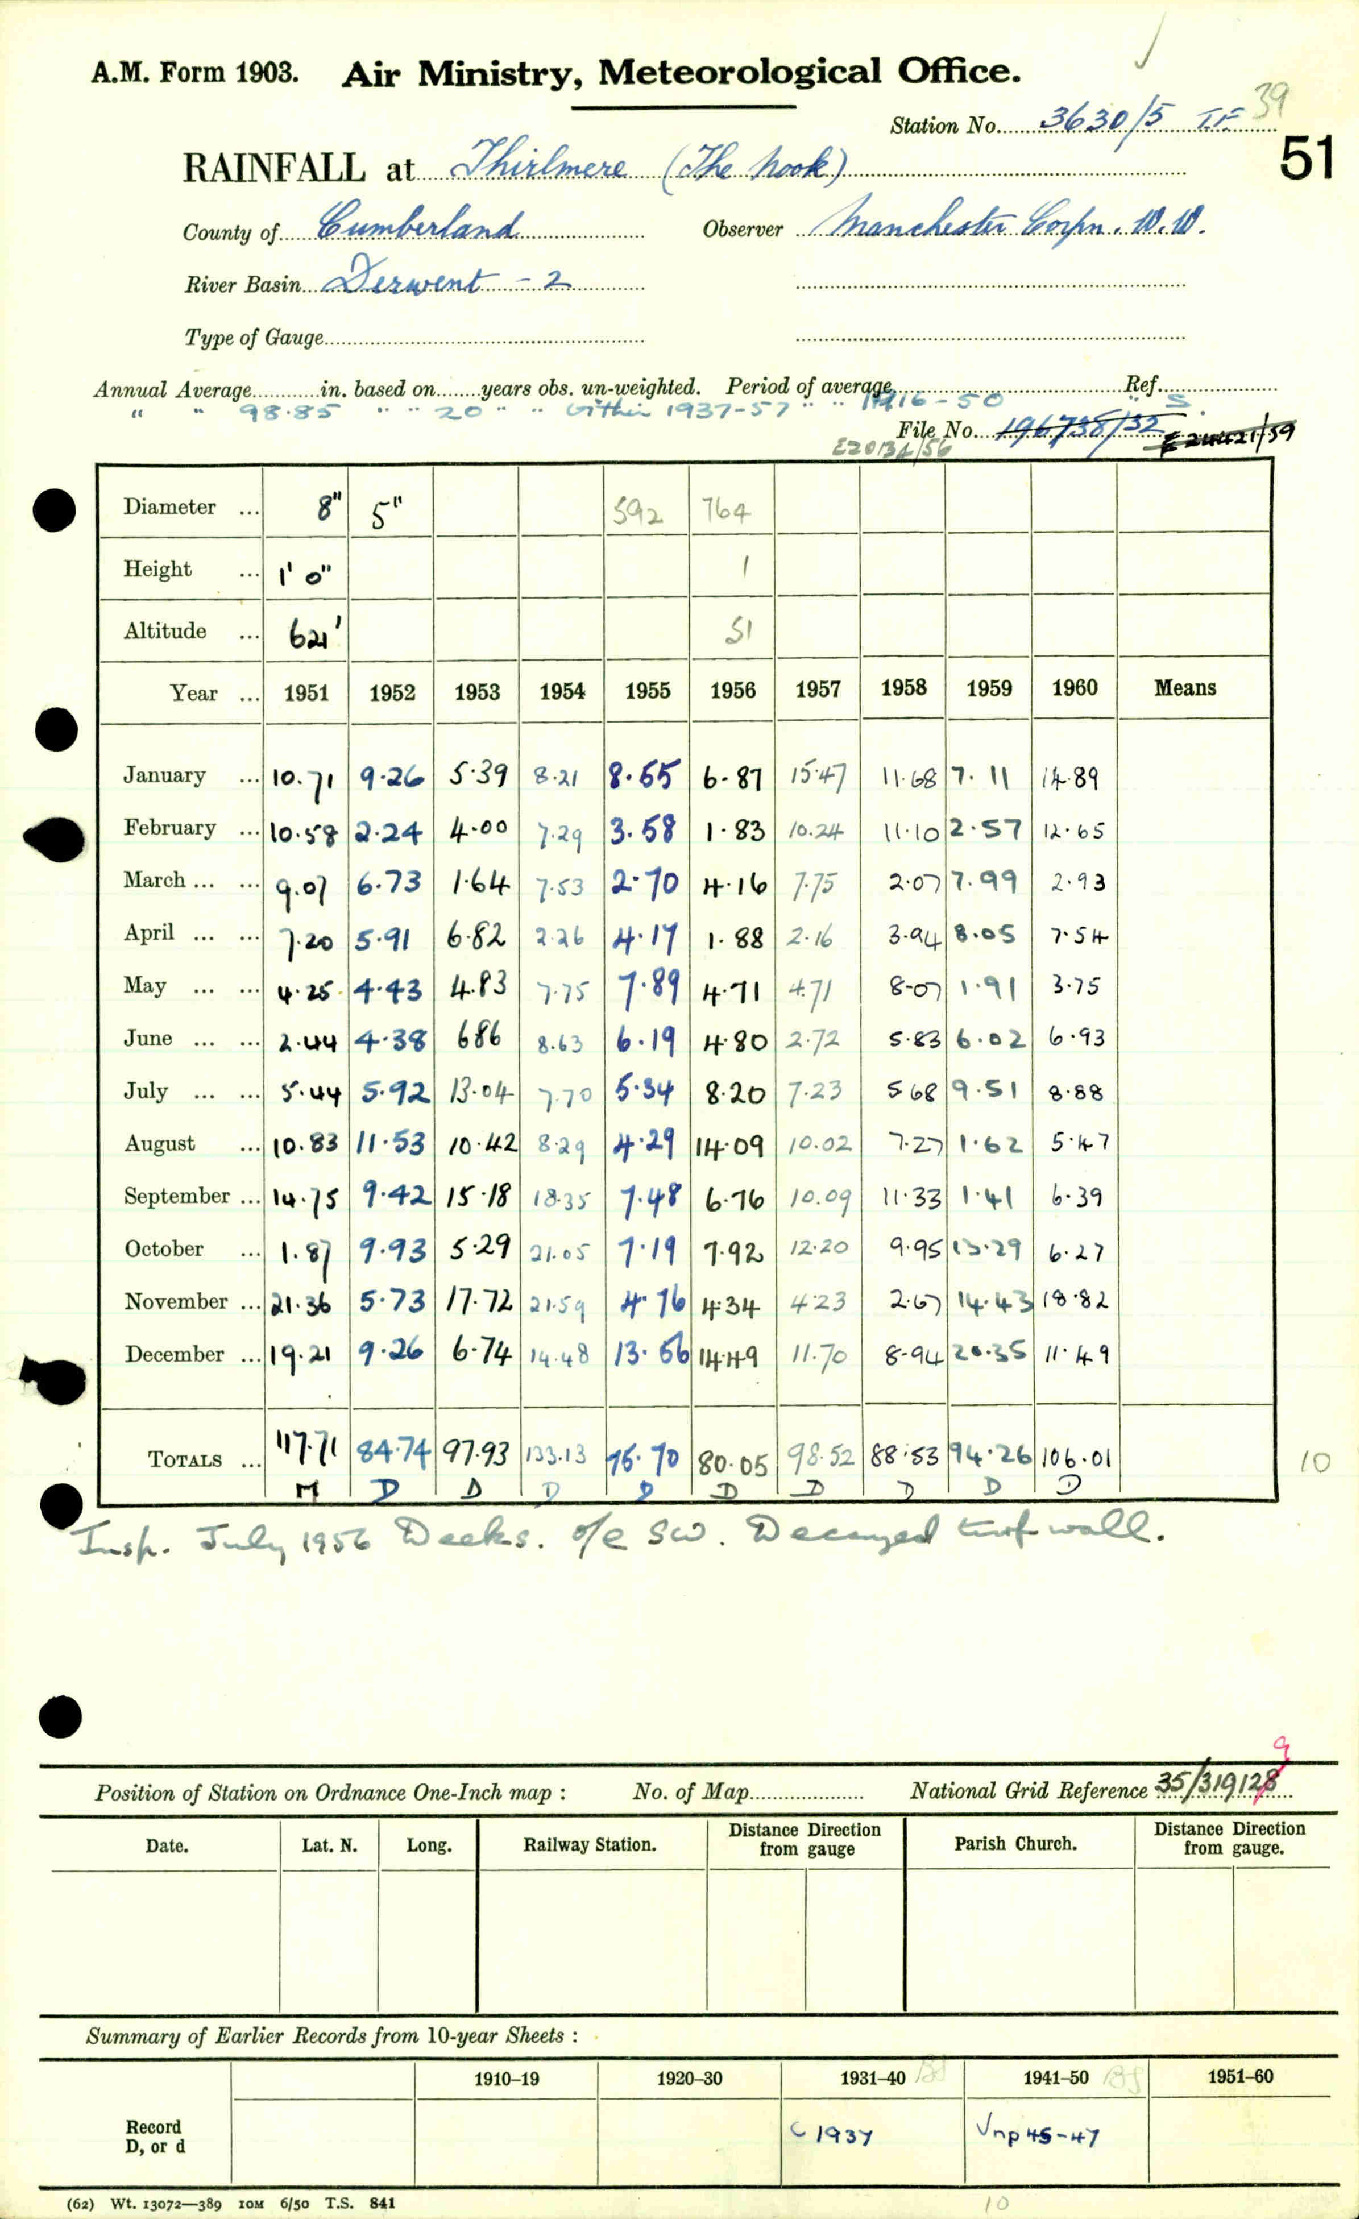 A.M. Form 1903. Air Ministry, Meteorological Office.
39
Station No. 3630/5 T.F.
51
RAINFALL at Thirlmere (The Nook)
County of Cumberland Observer Manchester Corpn. W.W.
River Basin Derwent - 2
Type of Gauge
Annual Average in. based on years obs. un-weighted. Period of average Ref.
" " 98.85 " " 20 " " within 1937-57 " " 1916-50 " S.
File No. 196738/32
E20134/56 E 24421/59
Diameter ... 8" 5" 592 764
Height ... 1' 0" 1
Altitude ... 621' 51
Year ... 1951 1952 1953 1954 1955 1956 1957 1958 1959 1960 Means
January ... 10.71 9.26 5.39 8.21 8.55 6.87 15.47 11.68 7.11 14.89
February ... 10.58 2.24 4.00 7.29 3.58 1.83 10.24 11.10 2.57 12.65
March ... ... 9.07 6.73 1.64 7.53 2.70 4.16 7.75 2.07 7.99 2.93
April ... ... 7.20 5.91 6.82 2.26 4.17 1.88 2.16 3.94 8.05 7.54
May ... ... 4.25 4.43 4.83 7.75 7.89 4.71 4.71 8.07 1.91 3.75
June ... ... 2.44 4.38 6.86 8.63 6.19 4.80 2.72 5.83 6.02 6.93
July ... ... 5.44 5.92 13.04 7.70 5.34 8.20 7.23 5.68 9.51 8.88
August ... 10.83 11.53 10.42 8.29 4.29 14.09 10.02 7.27 1.62 5.47
September ... 14.75 9.42 15.18 18.35 7.48 6.76 10.09 11.33 1.41 6.39
October ... 1.87 9.93 5.29 21.05 7.19 7.92 12.20 9.95 13.29 6.27
November ... 21.36 5.73 17.72 21.59 4.76 4.34 4.23 2.67 14.43 18.82
December ... 19.21 9.26 6.74 14.48 13.56 14.49 11.70 8.94 20.35 11.49
TOTALS ... 117.71 84.74 97.93 133.13 75.70 80.05 98.52 88.53 94.26 106.01 10
M D D D D D D D D D
Insp. July 1956 Deeks. o/e SW. Decayed turf wall.
9
Position of Station on Ordnance One-Inch map : No. of Map National Grid Reference 35/319128
Date. Lat. N. Long. Railway Station. Distance from gauge Direction Parish Church. Distance from gauge. Direction
Summary of Earlier Records from 10-year Sheets :
1910–19 1920–30 1931–40 BS 1941–50 BS 1951–60
Record D, or d C 1937 Vnp 45-47
(62) Wt. 13072—389 10M 6/50 T.S. 841
10